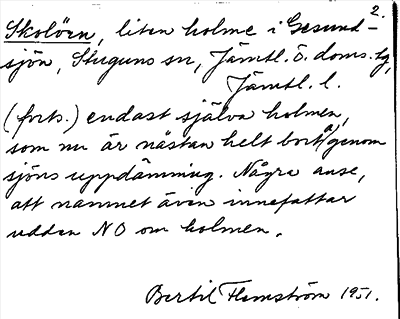 2.
Skolöen, liten holme i Gesund-
sjön, Stuguns sn, Jämtl. ö. doms. tg,
Jämtl. l.
(forts.) endast själva holmen,
som nu är nästan helt borta genom
sjöns uppdämning. Några anse,
att namnet även innefattar
udden NO om holmen.
Bertil Flemström 1951.